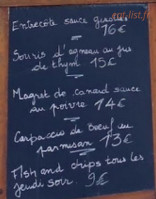 Entrecôte sauce
16€
Souris d'agneau au jus
de thym. 15€
Magret de canard sauce
au poivre 14€
Carpaccio de Boeuf au
parmesan 13€
Fish and chips tous les
jeudi soir. 9€